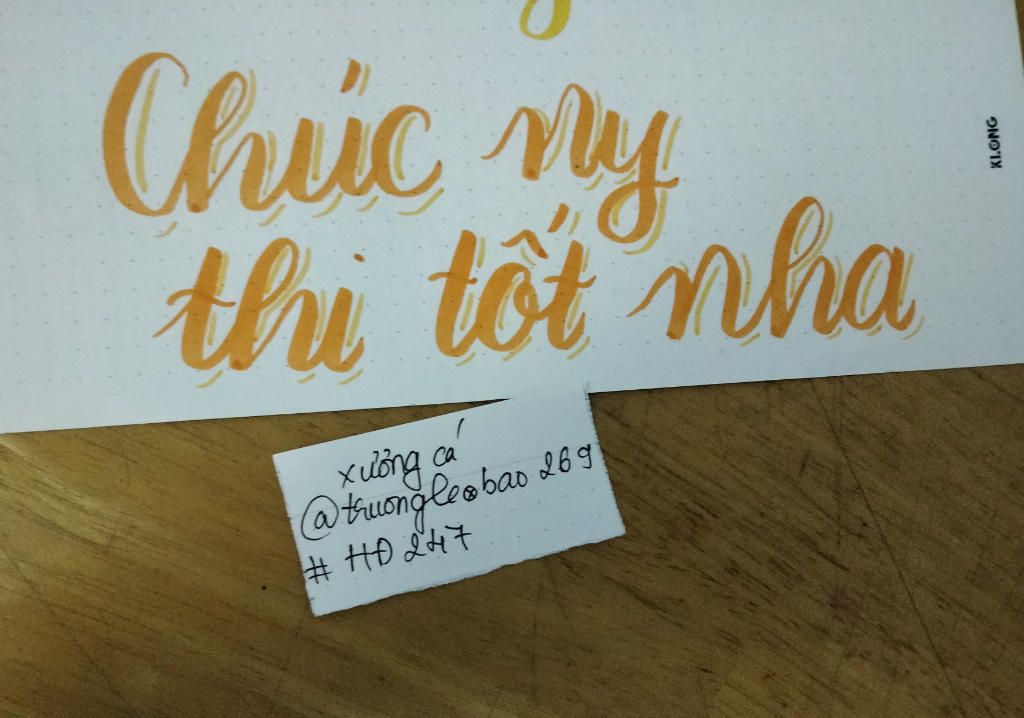 y
Chúc ny
thi tốt nha
KLONG
xưởng cá
@truongleobao269
# HĐ 247